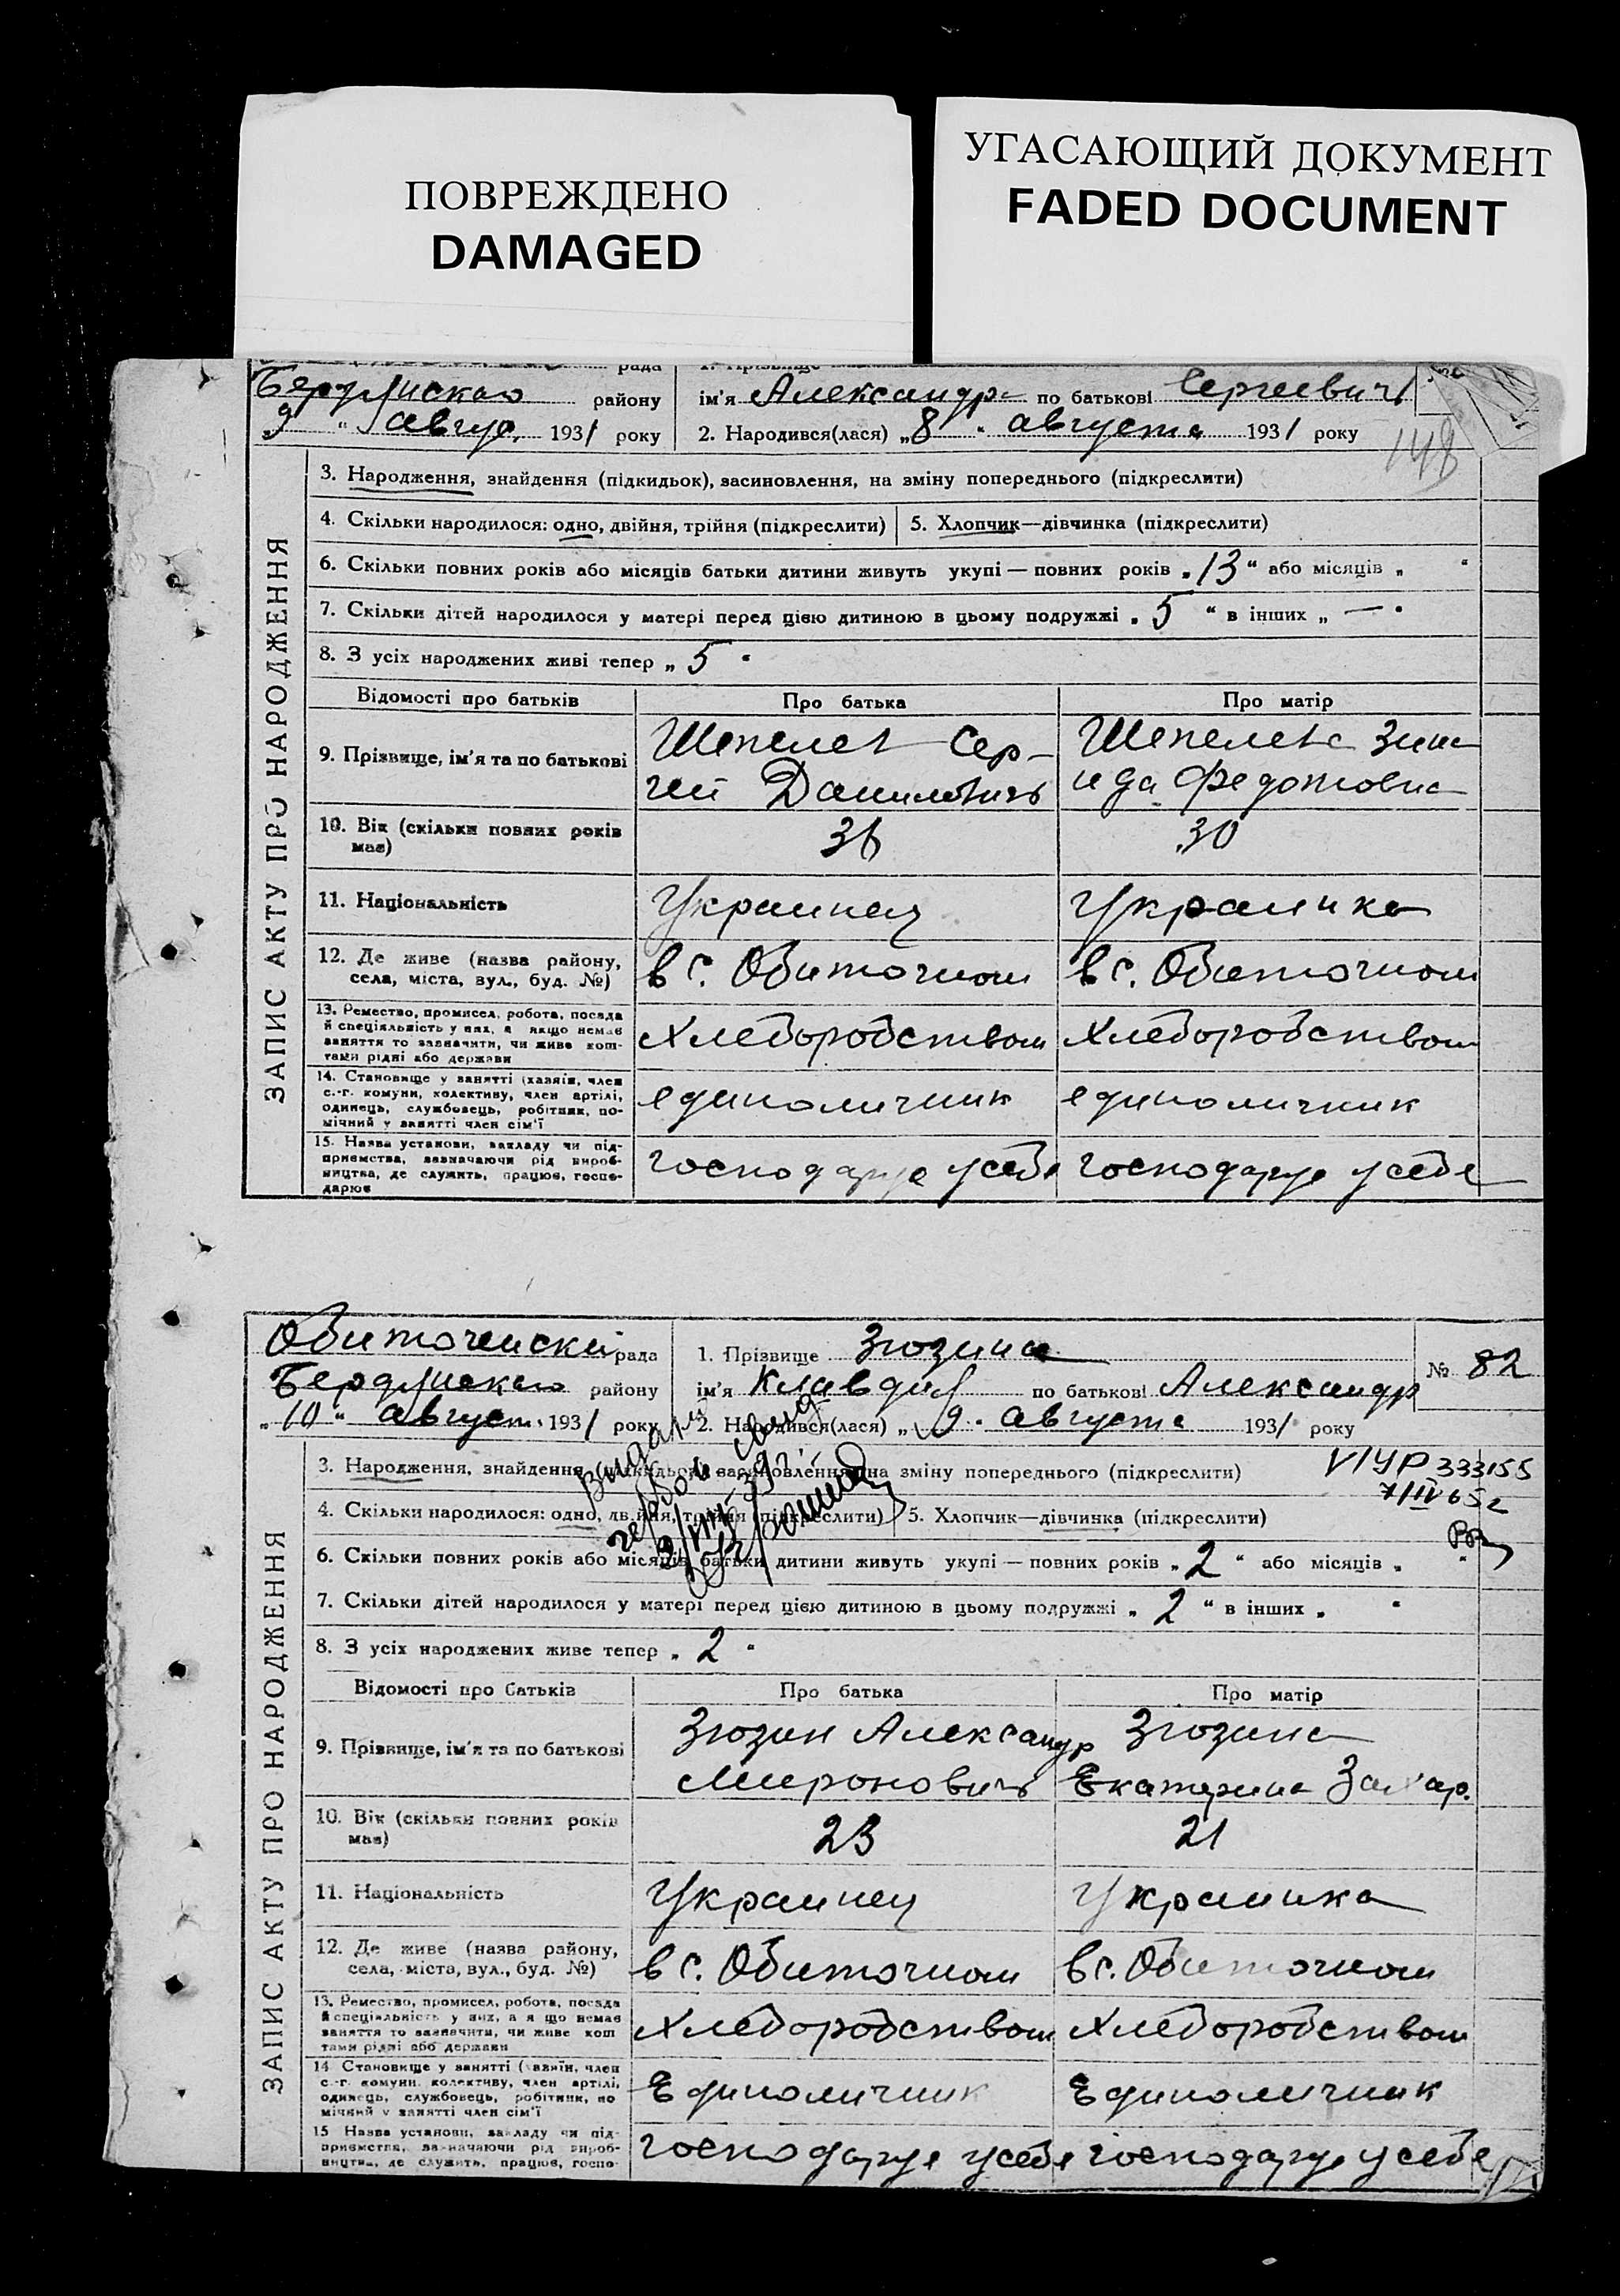 ПОВРЕЖДЕНО
DAMAGED
УГАСАЮЩИЙ ДОКУМЕНТ
FADED DOCUMENT
рада
1. Прізвище
Бердянскаго району
ім'я Александр по батькові Сергиевичъ
„9“ Август 1931 року
2. Народився(лася) „8“ августа 1931 року
148
ЗАПИС АКТУ ПРО НАРОДЖЕННЯ
3. Народження, знайдення (підкидьок), засиновлення, на зміну попереднього (підкреслити)
4. Скільки народилося: одно, двійня, трійня (підкреслити)
5. Хлопчик—дівчинка (підкреслити)
6. Скільки повних років або місяців батьки дитини живуть укупі — повних років „13“ або місяців „ “
7. Скільки дітей народилося у матері перед цією дитиною в цьому подружжі „5“ в інших „—“
8. З усіх народжених живі тепер „5“
Відомості про батьків Про батька Про матір
9. Прізвище, ім'я та по батькові
Шепелев Сер-
гей Данилович
Шепелева Зина
ида Федотовна
10. Вік (скільки повних років
має)
36
30
11. Національність Украинец Украинка
12. Де живе (назва району,
села, міста, вул., буд. №)
в с. Обиточном
в с. Обиточном
13. Ремество, промисел, робота, посада
й спеціяльність у них, а якщо немає
заняття то зазначити, чи живе кош-
тами рідні або держави
Хлеборобством
Хлеборобством
14. Становище у занятті (хазяїн, член
с.-г. комуни, колективу, член артілі,
одинець, службовець, робітник, по-
мічний у занятті член сім'ї
единоличник
единоличник
15. Назва установи, закладу чи під-
приємства, зазначаючи рід вироб-
ництва, де служить, працює, госпо-
дарює
господарує у себе
господарує у себе
Обиточенской рада
1. Прізвище Зюзина
№ 82
Бердянскаго району
ім'я Клавдия по батькові Александр
„10“ август. 1931 року
2. Народився(лася) „9“ августа 1931 року
ЗАПИС АКТУ ПРО НАРОДЖЕННЯ
3. Народження, знайдення (підкидьок), засиновлення, на зміну попереднього (підкреслити)
V/УР 333155
7/IV 65 г
4. Скільки народилося: одно, двійня, трійня (підкреслити)
5. Хлопчик—дівчинка (підкреслити)
6. Скільки повних років або місяців батьки дитини живуть укупі — повних років „2“ або місяців „ “
7. Скільки дітей народилося у матері перед цією дитиною в цьому подружжі „2“ в інших „ “
8. З усіх народжених живе тепер „2“
Відомості про батьків Про батька Про матір
9. Прізвище, ім'я та по батькові
Зюзин Александр
Миронович
Зюзина
Екатерина Захар.
10. Вік (скільки повних років
має)
23
21
11. Національність Украинец Украинка
12. Де живе (назва району,
села, міста, вул., буд. №)
в с. Обиточном
в с. Обиточном
13. Ремество, промисел, робота, посада
й спеціяльність у них, а якщо немає
заняття то зазначити, чи живе кош
тами рідні або держави
Хлеборобством
Хлеборобством
14. Становище у занятті (хазяїн, член
с.-г. комуни, колективу, член артілі,
одинець, службовець, робітник, по
мічний у занятті член сім'ї
Единоличник
Единоличник
15. Назва установи, закладу чи під-
приємства, зазначаючи рід вироб-
ництва, де служить, працює, госпо-
господарує у себе
господарує у себе